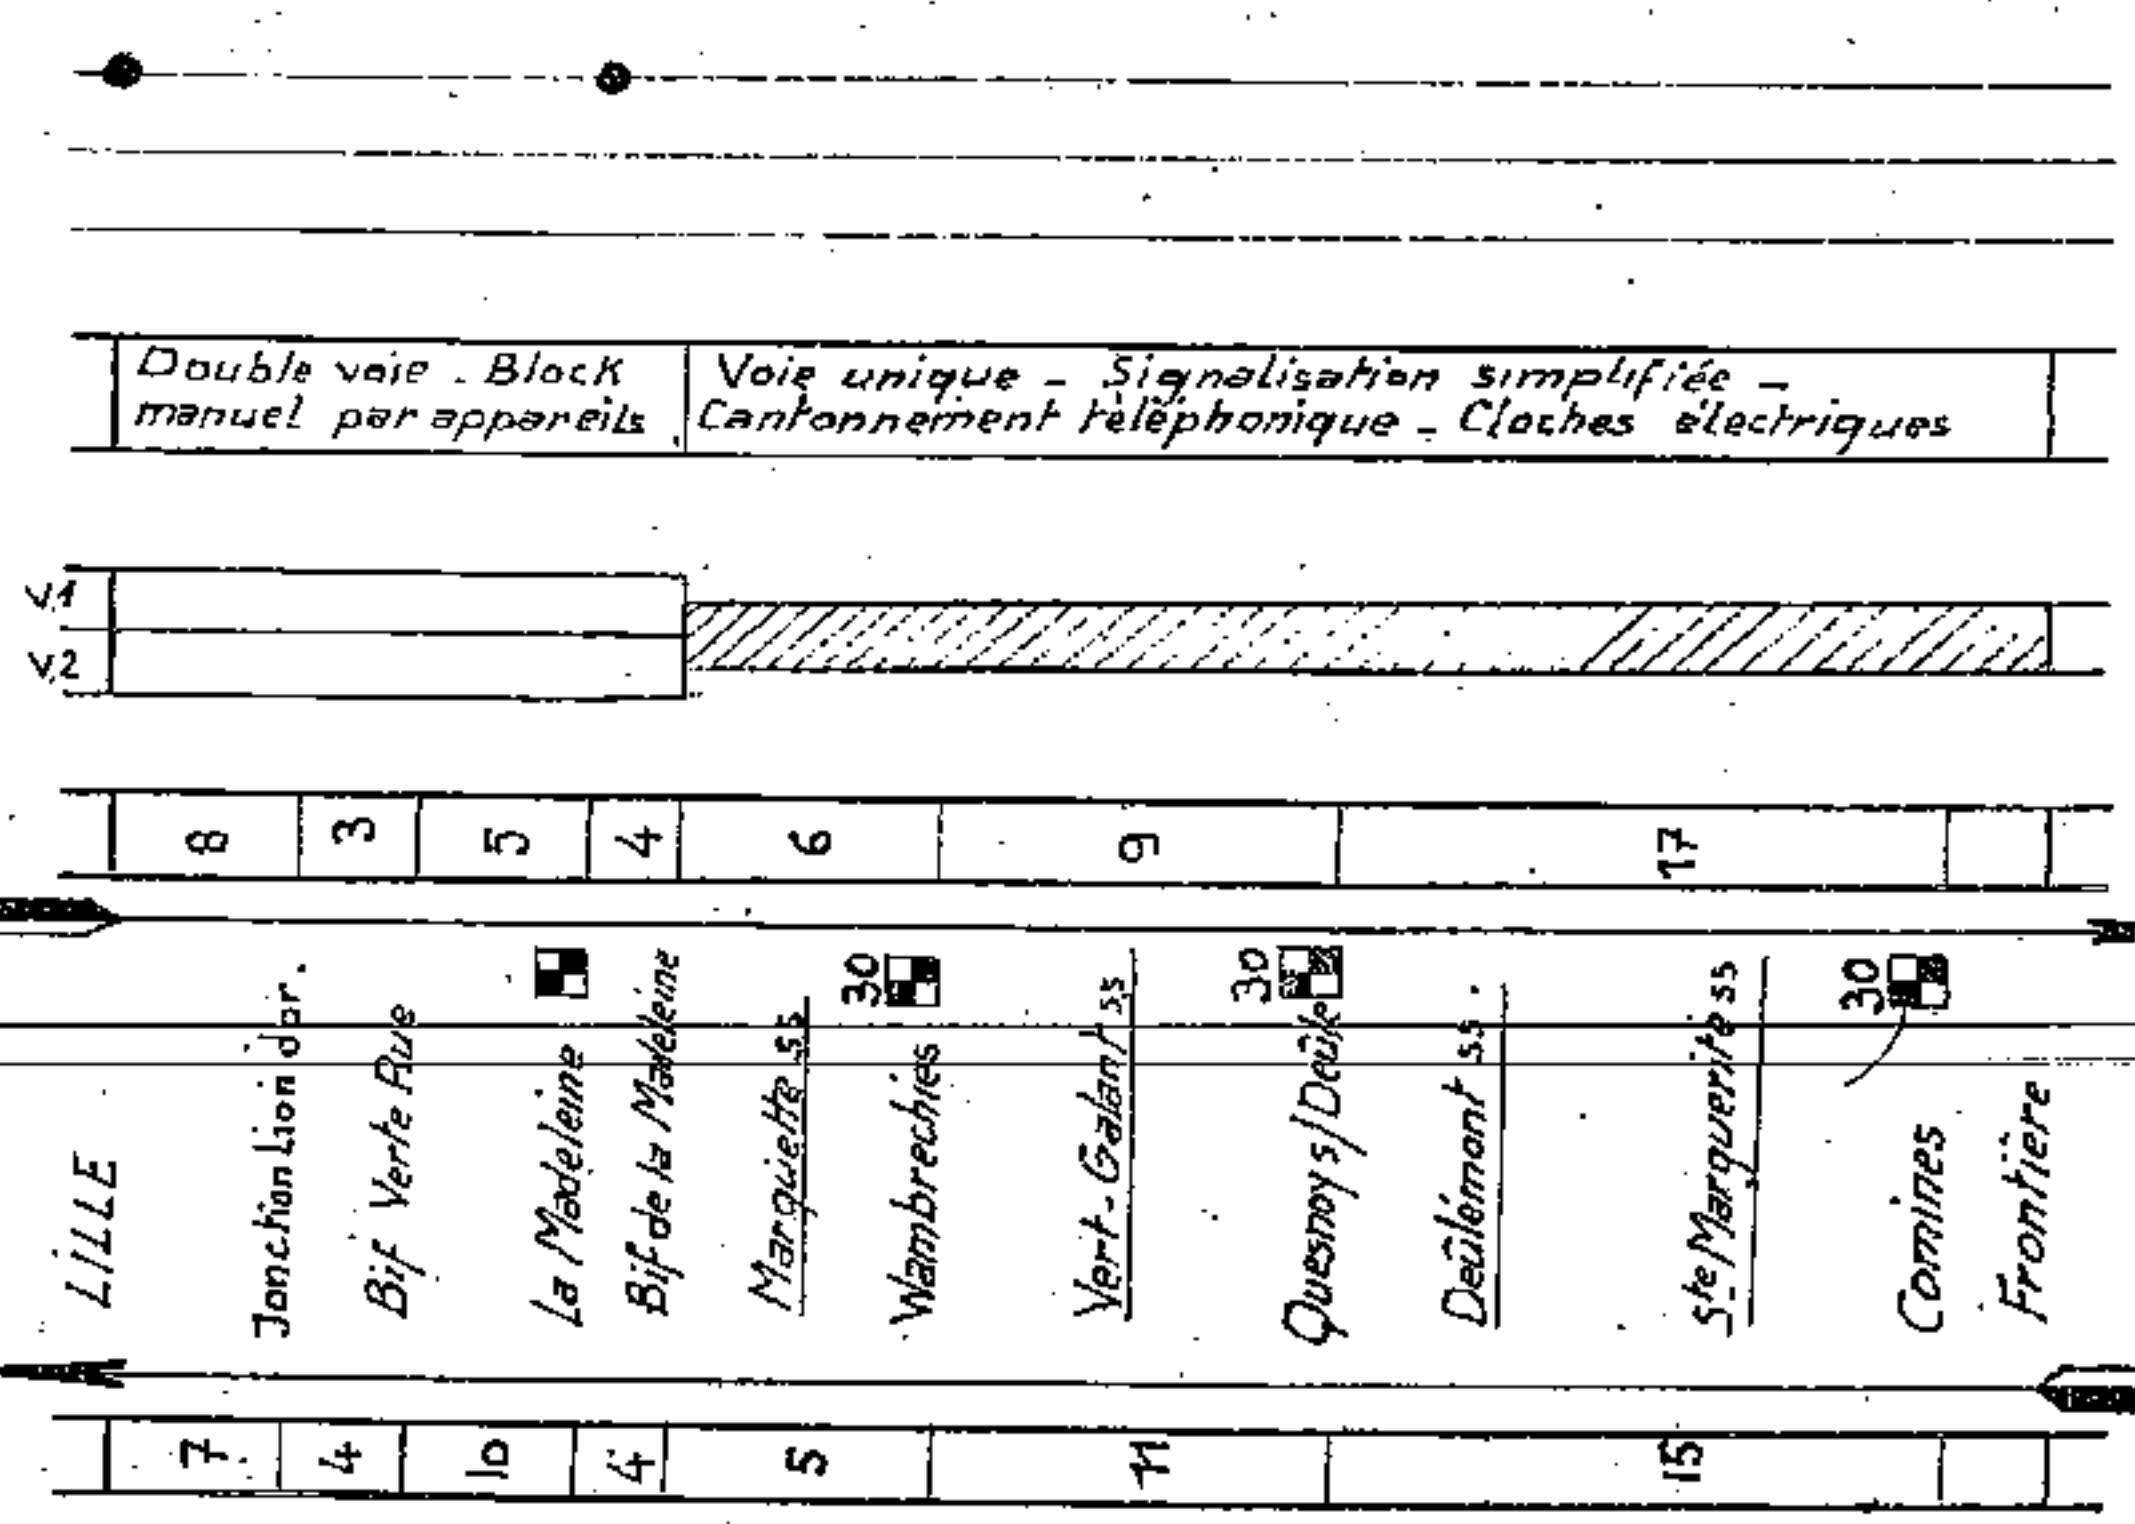 Double voie - Block
manuel par appareils
Voie unique - Signalisation simplifiée -
Cantonnement téléphonique - Cloches électriques
V1
V2
8
3
5
4
6
9
17
LILLE
Jonction Lion d'or.
Bif Verte Rue
La Madeleine
Bif de la Madeleine
Marquette ss
Wambrechies
30
Vert-Galant ss
Quesnoy s/Deûle
30
Deûlémont ss.
Ste Marguerite ss
Comines
30
Frontière
7
4
10
4
5
11
15